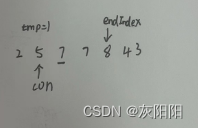 tmp=1 endIndex
2 5 7 7 8 43
con
CSDN @灰阳阳